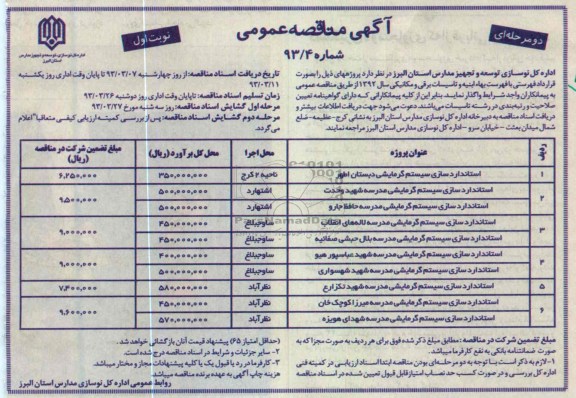 آگهی مناقصه عمومی
شماره ۹۳/۴
دو مرحله‌ای
نوبت اول
سازمان نوسازی توسعه و تجهیز مدارس استان البرز
اداره کل نوسازی توسعه و تجهیز مدارس استان البرز در نظر دارد پروژه‌های ذیل را بصورت
قرارداد فهرستی با فهرست بهاء ابنیه و تاسیسات برقی و مکانیکی سال ۱۳۹۲ از طریق مناقصه عمومی
به پیمانکاران واجد شرایط واگذار نمایند. بنابر این از کلیه پیمانکارانی که دارای گواهینامه تعیین
صلاحیت و رتبه‌بندی در رشته تاسیسات می‌باشند، دعوت می‌شود جهت دریافت اطلاعات بیشتر و
دریافت اسناد مناقصه به دبیرخانه اداره کل نوسازی مدارس استان البرز به نشانی کرج - عظیمیه - ضلع
شمال میدان بعثت - خیابان سرو - اداره کل نوسازی مدارس استان البرز مراجعه نمایند.
تاریخ دریافت اسناد مناقصه: از روز چهارشنبه ۹۳/۰۳/۰۷ تا پایان وقت اداری روز یکشنبه
۹۳/۰۳/۱۱
زمان تسلیم اسناد مناقصه: تا پایان وقت اداری روز دوشنبه ۹۳/۰۳/۲۶
مرحله اول گشایش اسناد مناقصه: روز سه شنبه مورخ ۹۳/۰۳/۲۷
مرحله دوم گشایش اسناد مناقصه: پس از بررسی کمیته ارزیابی کیفی متعاقباً اعلام
می‌گردد.
ردیف عنوان پروژه محل اجرا محل کل برآورد (ریال) مبلغ تضمین شرکت در مناقصه (ریال)
۱ استاندارد سازی سیستم گرمایشی دبستان اطهر ناحیه ۲ کرج ۳۵۰,۰۰۰,۰۰۰ ۶,۲۵۰,۰۰۰
۲ استاندارد سازی سیستم گرمایشی مدرسه شهید وحدت اشتهارد ۵۰۰,۰۰۰,۰۰۰ ۹,۵۰۰,۰۰۰
استاندارد سازی سیستم گرمایشی مدرسه حافظ جارو اشتهارد ۵۰۰,۰۰۰,۰۰۰
۳ استاندارد سازی سیستم گرمایشی مدرسه لاله‌های انقلاب ساوجبلاغ ۴۵۰,۰۰۰,۰۰۰ ۹,۰۰۰,۰۰۰
استاندارد سازی سیستم گرمایشی مدرسه بلال حبشی صفائیه ساوجبلاغ ۴۵۰,۰۰۰,۰۰۰
۴ استاندارد سازی سیستم گرمایشی مدرسه شهید عباسپور هیو ساوجبلاغ ۴۰۰,۰۰۰,۰۰۰ ۹,۰۰۰,۰۰۰
استاندارد سازی سیستم گرمایشی مدرسه شهید شهسواری ساوجبلاغ ۵۰۰,۰۰۰,۰۰۰
۵ استاندارد سازی سیستم گرمایشی مدرسه شهید تکزارع نظرآباد ۵۸۰,۰۰۰,۰۰۰ ۷,۴۰۰,۰۰۰
۶ استاندارد سازی سیستم گرمایشی مدرسه میرزا کوچک خان نظرآباد ۴۵۰,۰۰۰,۰۰۰ ۹,۶۰۰,۰۰۰
استاندارد سازی سیستم گرمایشی مدرسه شهدای هویزه نظرآباد ۵۷۰,۰۰۰,۰۰۰
مبلغ تضمین شرکت در مناقصه: مطابق مبلغ ذکر شده فوق برای هر ردیف به صورت مجزا که به
صورت ضمانتنامه بانکی به نفع کارفرما میباشد.
۱- لازم به ذکر است با توجه به دو مرحله‌ای بودن مناقصه ابتدا اسناد ارزیابی در کمیته فنی
اداره کل بررسی و در صورت کسب حد نصاب امتیاز قابل قبول تعیین شده در اسناد مناقصه
(حداقل امتیاز ۶۵) پیشنهاد قیمت آنان بازگشائی خواهد شد.
۲- سایر جزئیات و شرایط در اسناد مناقصه درج شده است.
۳- کارفرما در رد یا قبول یک یا کلیه پیشنهادات مجاز و مختار میباشد.
هزینه چاپ آگهی به عهده برنده مناقصه میباشد.
روابط عمومی اداره کل نوسازی مدارس استان البرز